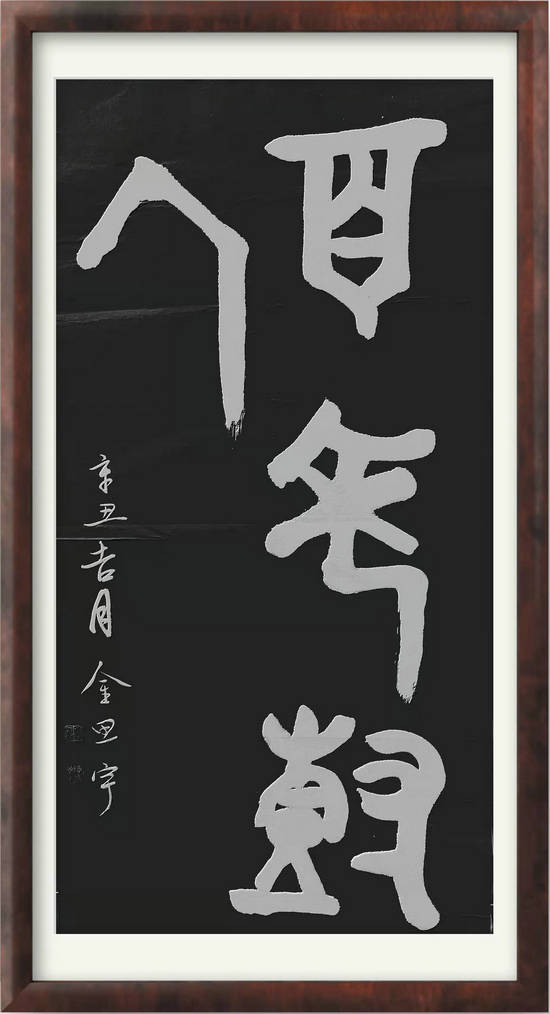 百年樹
人
辛丑吉月 金思宇